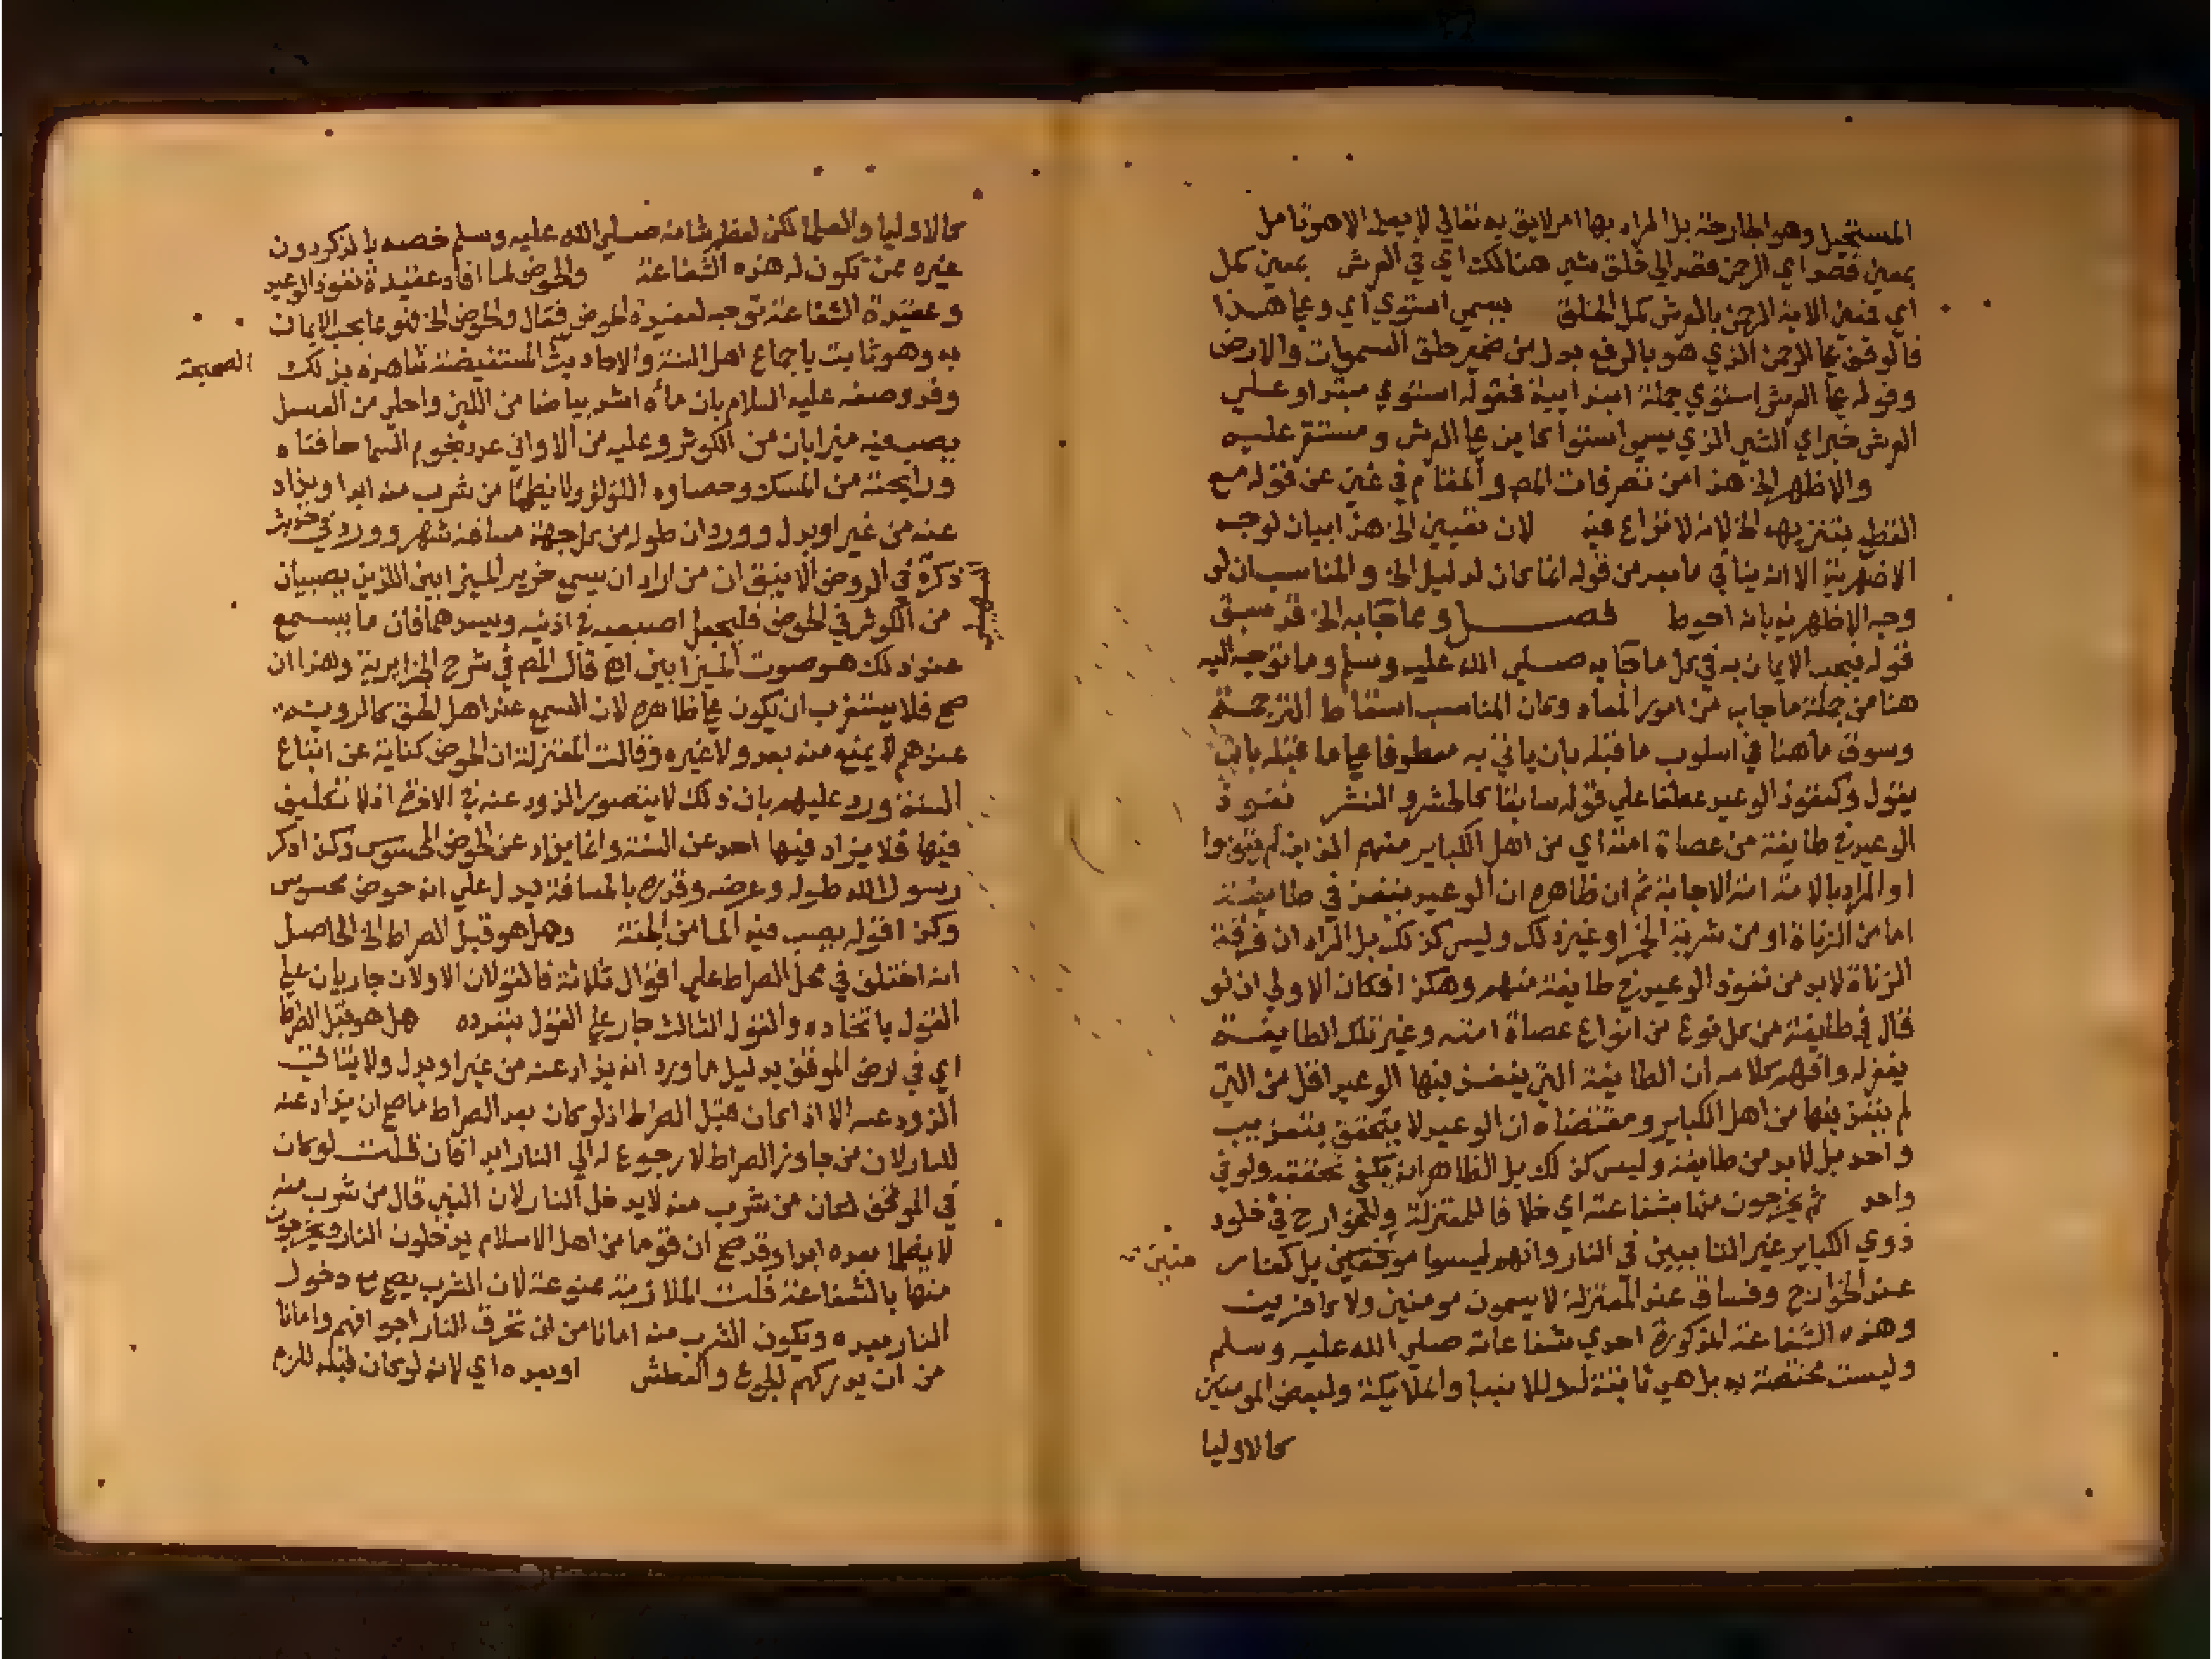 المستحيل وهو الجارحة بل المراد بها امر لايق به تعالي لا يعلمه الا هو تامل
بمعني قصد اي الرحمن قصد الي خلق شي هنالك اي في العرش بمعني كمل
اي فمعني الاية الرحمن بالعرش كمل الخلق يسمي استوي اي وعلي هذا
فالوقف علي الرحمن الذي هو بالرفع بدل من ضمير خلق السموات والارض
وقوله علي العرش استوي جملة ابتدايية فقوله استوي مبتدا وعلي
العرش خبر اي الشي الذي يسمي استوا كاين علي العرش ومستقر عليه
والاظهر الخ هذا من تصرفات المص والمقام في غني عن قوله مع
القطع بتنزيهه الخ لانه لا نزاع فيه لان تعيين الخ هذا بيان لوجه
الاظهرية الا انه ينافي ما بعده من قوله انما كان لدليل الخ والمناسب ان لو
وجه الاظهرية بانه احوط فصل ومما جا به الخ قد سبق
قوله فيجب الايمان به في كل ما جا به صلي الله عليه وسلم وما توجه اليه
هنا من جملة ما جا به من امور المعاد وكان المناسب اسقاط الترجمة
وسوق ما هنا في اسلوب ما قبله بان ياتي به معطوفا علي ما قبله بان
يقول وكنفوذ الوعيد عطفا علي قوله سابقا كالحشر والنشر نفوذ
الوعيد في طايفة من عصاة امته اي من اهل الكباير منهم الذين لم يتوبوا
والمراد بالامة امة الاجابة ثم ان ظاهره ان الوعيد ينفذ في طايفة
اما من الزناة او من شربة الخمر او غير ذلك وليس كذلك بل المراد ان فرقة
الزناة لابد من نفوذ الوعيد في طايفة منهم وهكذا فكان الاولي ان لو
قال في طايفة من كل نوع من انواع عصاة امته وغير تلك الطايفة
يغفر له وافهم كلامه ان الطايفة التي ينفذ فيها الوعيد اقل من التي
لم ينفذ فيها من اهل الكباير ومقتضاه ان الوعيد لا يتحقق بتعذيب
واحد بل لابد من طايفة وليس كذلك بل الظاهر انه يكفي تحققه ولو في
واحد ثم يخرجون منها بشفاعته اي خلافا للمعتزلة وللخوارج في خلود
ذوي الكباير غير التايبين في النار وانهم ليسوا مومنين بل كفار
عند الخوارج وفساق عند المعتزلة لا يسمون مومنين ولا كافرين
وهذه الشفاعة المذكورة احدي شفاعاته صلي الله عليه وسلم
وليست مختصة به بل هي ثابتة له وللانبيا والملايكة ولبعض المومنين
كالاوليا
كالاوليا والعلما لكن لعظم شانه صلي الله عليه وسلم خصه بالذكر دون
غيره ممن تكون له هذه الشفاعة والحوض لما افاد عقيدة نفوذ الوعيد
وعقيدة الشفاعة توجه لعقيدة الحوض فقال والحوض الخ فهو مما يجب الايمان
به وهو ثابت باجماع اهل السنة والاحاديث المستفيضة شاهدة بذلك
الصحيحة
وقد وصفه عليه السلام بان ماه اشد بياضا من اللبن واحلي من العسل
يصب فيه ميزابان من الكوثر وعليه من الاواني عدد نجوم السما حافتاه
ورايحته من المسك وحصاوه اللولو ولا يظما من شرب منه ابدا ويذاد
عنه من غير او بدل وورد ان طوله من كل جهة مسافة شهر وورد في حديث
ذكره في الروض الانيق ان من اراد ان يسمع خرير الميزابين اللذين يصبان
من الكوثر في الحوض فليجعل اصبعيه في اذنيه ويسدهما فان ما يسمع
عند ذلك هو صوت الميزابين اه قال المص في شرح الجزايرية وهذا ان
صح فلا يستغرب ان يكون علي ظاهره لان السمع عند اهل الحق كالروية
عندهم لا يمنع منه بعد ولا غيره وقالت المعتزلة ان الحوض كناية عن اتباع
السنة ورد عليهم بان ذلك لا يتصور الذود عنه في الاخرة اذ لا تكليف
فيها فلا يذاد فيها احد عن السنة وانما يذاد عن الحوض المحسوس وكذا ذكر
رسول الله طوله وعرضه وقدره بالمسافة يدل علي انه حوض محسوس
وكذا قوله يصب فيه الما من الجنة وهل هو قبل الصراط الخ الحاصل
انه اختلف في محل الصراط علي اقوال ثلاثة فالقولان الاولان جاريان علي
القول باتحاده والقول الثالث جار علي القول بتعدده هل هو قبل الصراط
اي في ارض الموقف بدليل ما ورد انه يذاد عنه من غير او بدل ولا يتاتي
الذود عنه الا اذا كان قبل الصراط اذ لو كان بعد الصراط ما صح ان يذاد عنه
للنار لان من جاوز الصراط لا رجوع له الي النار ابدا فان قلت لو كان
في الموقف لكان من شرب منه لا يدخل النار لان النبي قال من شرب منه
لا يظما بعده ابدا وقد صح ان قوما من اهل الاسلام يدخلون النار ويخرجون
منها بالشفاعة قلت الملازمة ممنوعة لان الشرب يصح مع دخول
النار بعده ويكون الشرب منه امانا من ان تحرق النار اجوافهم وامانا
من ان يدركهم الجوع والعطش او بعده اي لانه لو كان قبله للزم